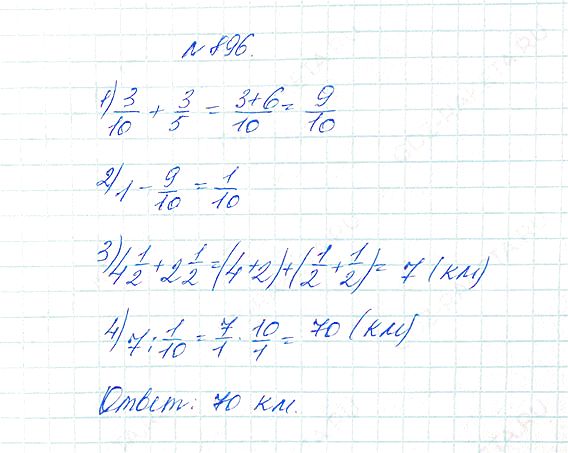 № 896.
1) 3/10 + 3/5 = (3+6)/10 = 9/10
2) 1 - 9/10 = 1/10
3) 4 1/2 + 2 1/2 = (4+2)+(1/2+1/2) = 7 (км)
4) 7 : 1/10 = 7/1 · 10/1 = 70 (км)
Ответ: 70 км.